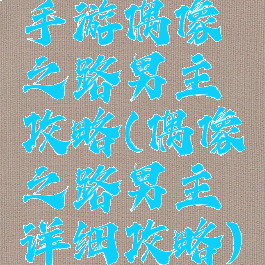 手游偶像
之路男主
攻略(偶像
之路男主
详细攻略)